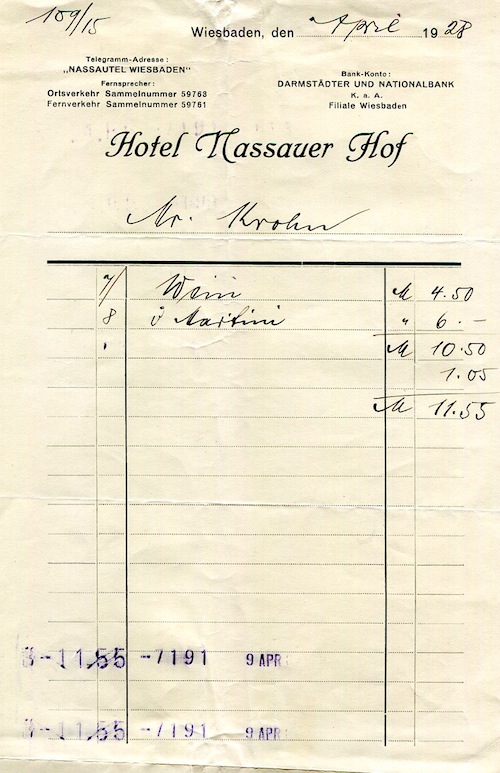 109/15
Wiesbaden, den April 1928
Telegramm-Adresse:
„NASSAUTEL WIESBADEN“
Fernsprecher:
Ortsverkehr Sammelnummer 59763
Fernverkehr Sammelnummer 59761
Bank-Konto:
DARMSTÄDTER UND NATIONALBANK
K. a. A.
Filiale Wiesbaden
Hotel Nassauer Hof
Mr. Krohn
7/ Wein M 4.50
8 Martini " 6.-
M 10.50
1.05
M 11.55
-11.55 -7191 9 APR
-11.55 -7191 9 APR